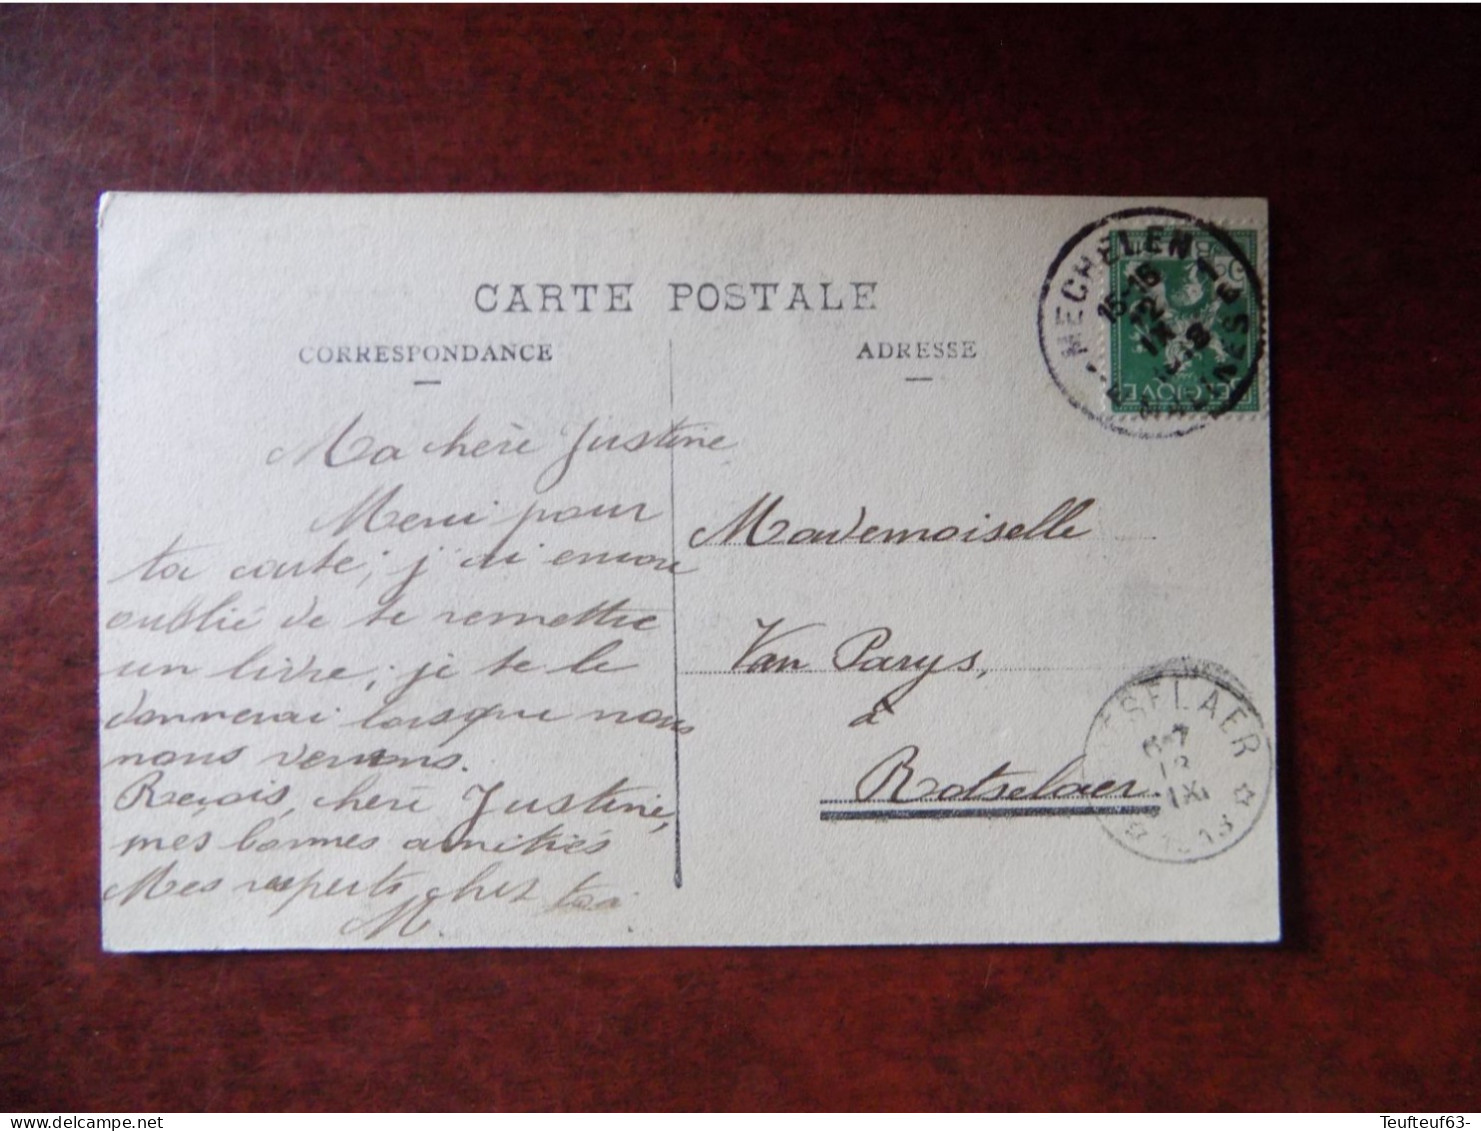 CARTE POSTALE
CORRESPONDANCE
ADRESSE
MECHELEN 1
15-16
12
IX
MALINES
BELGIQUE
Ma chère Justine
Merci pour
ta carte; j'ai encore
oublié de te remettre
un livre; je te le
donnerai lorsque nous
nous verrons.
Reçois, chère Justine,
mes bonnes amitiés
Mes respects chez toi
M.
Mademoiselle
Van Parys,
à
Rotselaer.
TSELAER
6-7
13
IX
Teufteuf63-